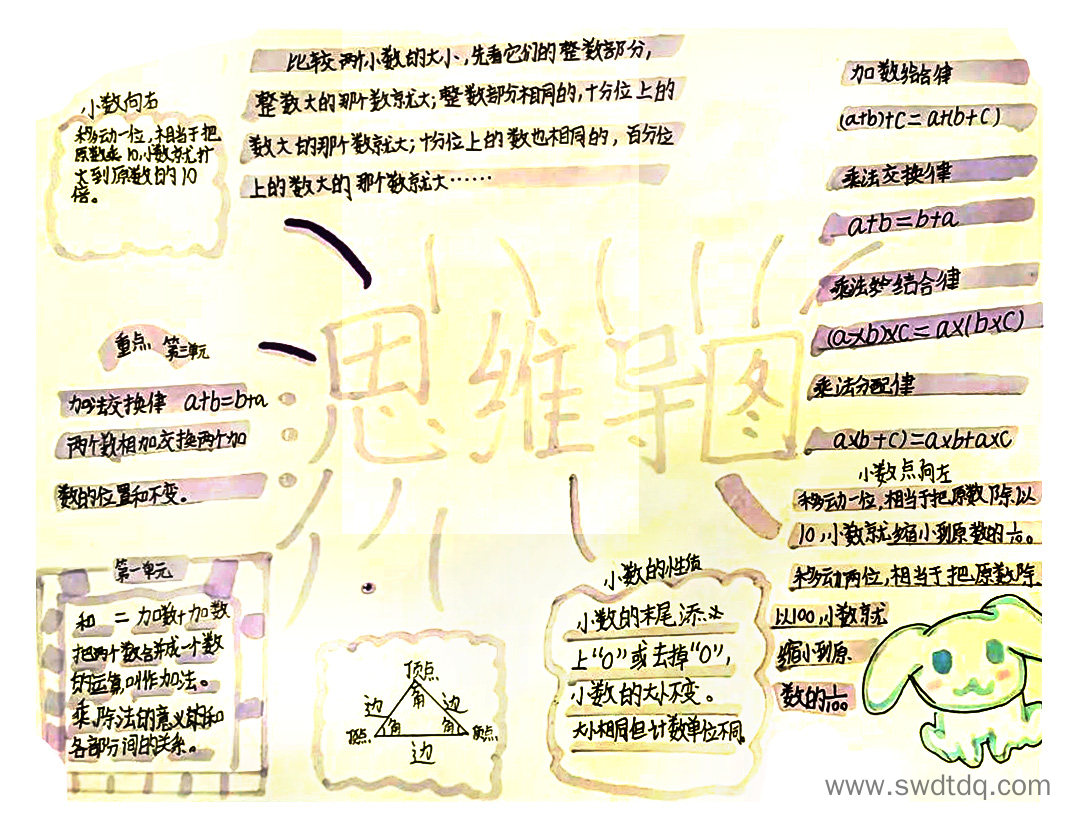 比较两个小数的大小,先看它们的整数部分,
整数大的那个数就大;整数部分相同的,十分位上的
数大的那个数就大;十分位上的数也相同的,百分位
上的数大的那个数就大……
小数向右
移动一位,相当于把
原数乘10,小数就扩
大到原数的10
倍。
加数结合律
(a+b)+C=a+(b+C)
乘法交换律
a+b=b+a
乘法结合律
(a×b)×C=a×(b×C)
乘法分配律
a×b+C)=a×b+a×C
思维导图
重点 第三单元
加法交换律 a+b=b+a
两个数相加交换两个加
数的位置和不变。
小数点向左
移动一位,相当于把原数除以
10,小数就缩小到原数的1/10。
移动两位,相当于把原数除
以100,小数就
缩小到原
数的1/100
第一单元
和 = 加数+加数
把两个数合并成一个数
的运算,叫作加法。
乘,除法的意义的和
各部分间的关系。
顶点
边 角 边
角 角
顶点 顶点
边
小数的性质
小数的末尾添
上“0”或去掉“0”,
小数的大小不变。
大小相同但计数单位不同。
www.swdtdq.com